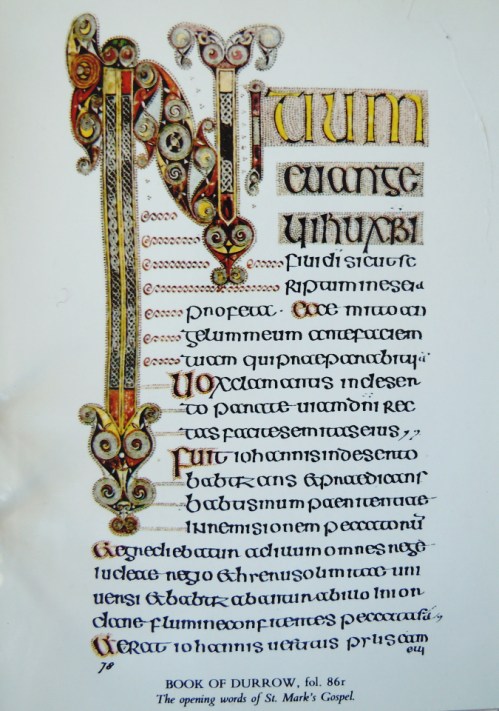 INITIUM
euange
lii ihu xpi
fili di sicut sc
riptum in eseia
profeta · Ecce mitto an
gelum meum ante faciem
tuam qui praeparabit ui
Uox clamantis in deser
to parate uiam dni rec
tas facite semitas eius
Fuit iohannis in deserto
babtizans et praedicans
babtismum paenitentiae
in remisionem peccatorum
et egrediebatur ad illum omnes rege
iudeae regio et hierusolimitae uni
uersi et babtizabantur ab illo in ior
dane flumine confitentes peccata sua
Et erat iohannis uestitus pilis cam
78
BOOK OF DURROW, fol. 86r
The opening words of St. Mark's Gospel.